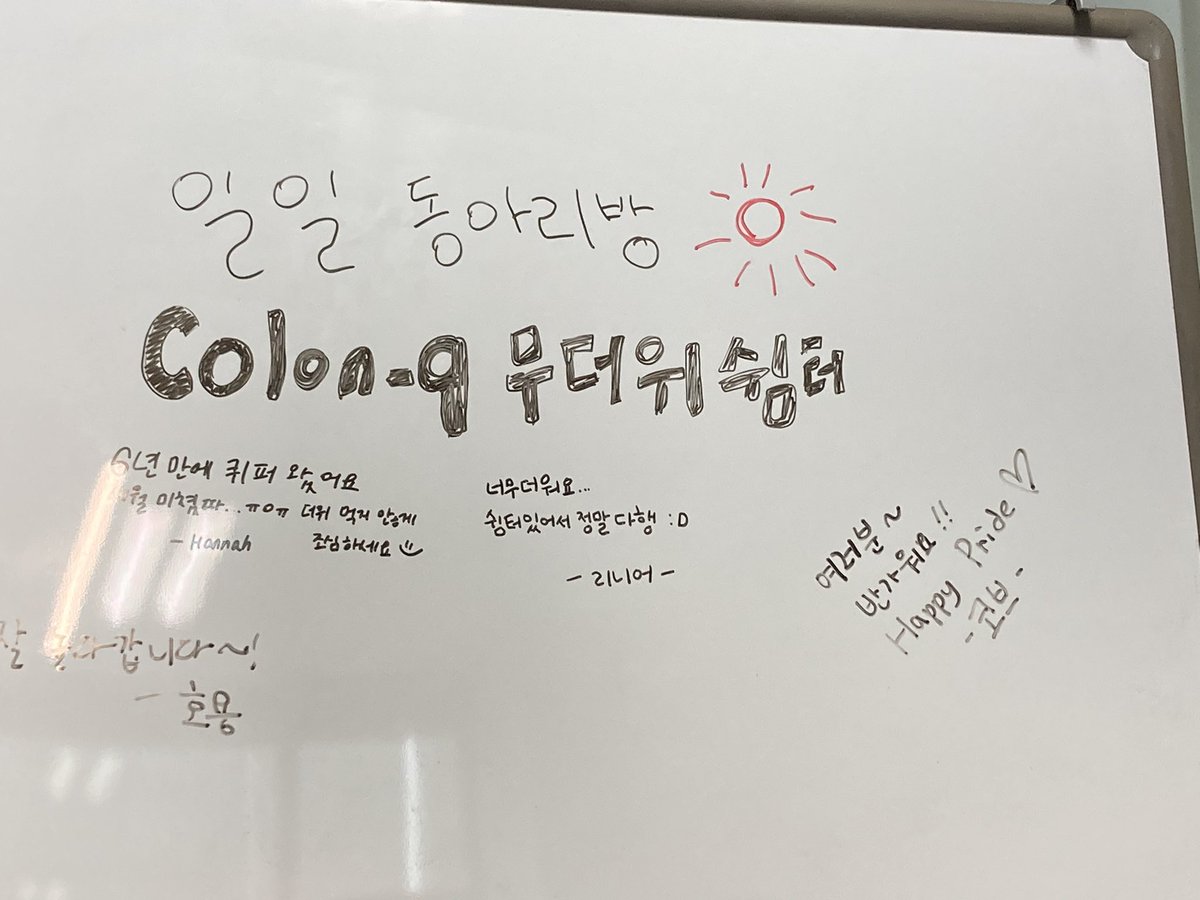 일일 동아리방
Colon-q 무더위쉼터
6년 만에 퀴퍼 왔어요
미쳤따..ㅠㅇㅠ 더위 먹지 않게
- Hannah 조심하세요
너무더워요...
쉼터있어서 정말 다행 :D
- 리니어 -
여러분~
반가워요!!
Happy Pride ♡
- 코브 -
잘 놀다갑니다~!
- 호용